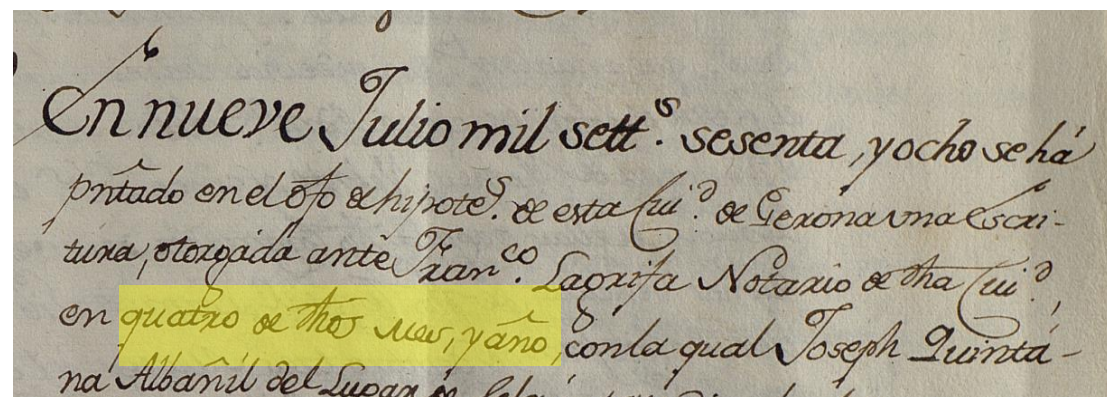 En nueve Julio mil sett.s sesenta, y ocho se há
pntado en el ofo de hipote.s de esta Ciu.d de Gerona una Escri-
tura, otorgada ante Fran.co Lagrifa Notario de dha Ciu.d,
en quatro de dhos mes, y año, con la qual Joseph Quintá-
na Albañil del Lugar de